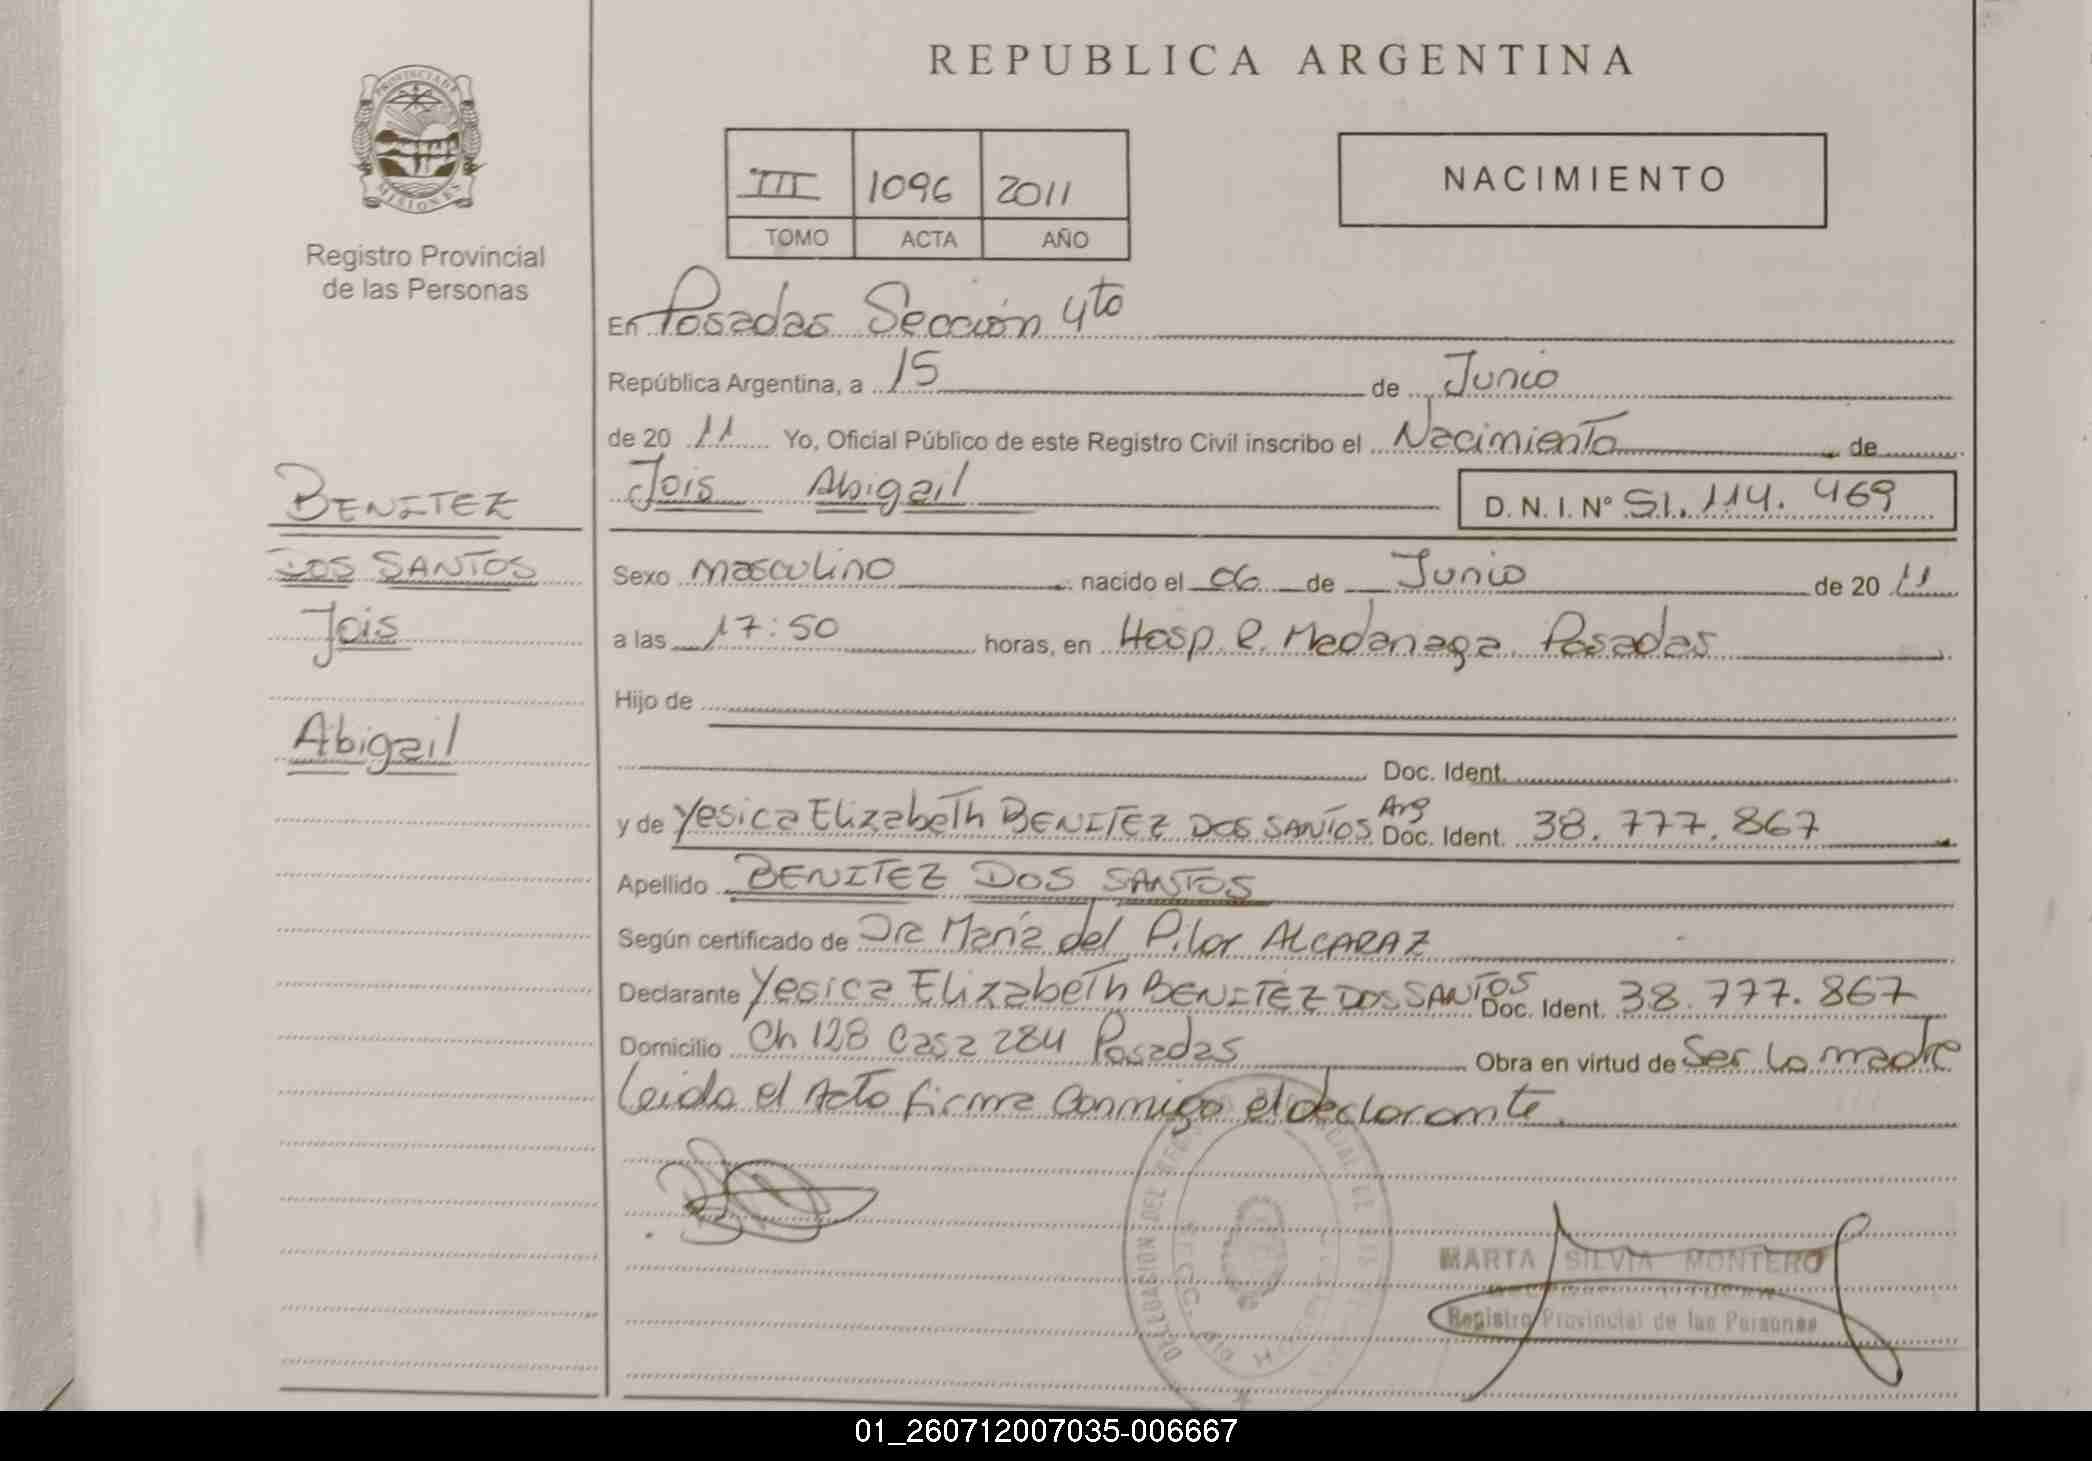 REPUBLICA ARGENTINA
PROVINCIA DE
MISIONES
Registro Provincial
de las Personas
III 1096 2011
TOMO ACTA AÑO
NACIMIENTO
En Posadas Sección 4to
República Argentina, a 15 de Junio
de 20 11 Yo, Oficial Público de este Registro Civil inscribo el Nacimiento de
Jois Abigail
D. N. I. N° 51.114.469
BENITEZ
DOS SANTOS
Jois
Abigail
Sexo masculino nacido el 06 de Junio de 20 11
a las 17:50 horas, en Hosp. R. Madariaga. Posadas
Hijo de
Doc. Ident.
y de Yesica Elizabeth BENITEZ DOS SANTOS Arg Doc. Ident. 38.777.867
Apellido BENITEZ DOS SANTOS
Según certificado de Dra María del Pilar ALCARAZ
Declarante Yesica Elizabeth BENITEZ DOS SANTOS Doc. Ident. 38.777.867
Domicilio Ch 128 Casa 284 Posadas Obra en virtud de Ser la madre
Leida el Acta firma conmigo el declarante.
DELEGACION DEL
MARTA SILVIA MONTERO
Registro Provincial de las Personas
01_260712007035-006667